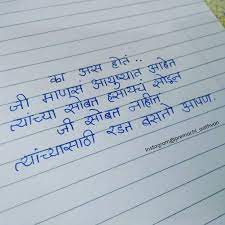 का अस होतं..
जी माणसं आयुष्यात आहेत
त्यांच्या सोबत हसायचं सोडून
जी सोबत नाहीत
त्यांच्यासाठी रडत बसतो आपण.
Instagram@premachi_aathvan